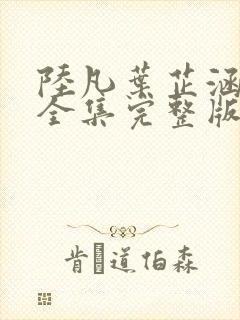 陸凡葉芷涵
全集完整版
肯道伯森